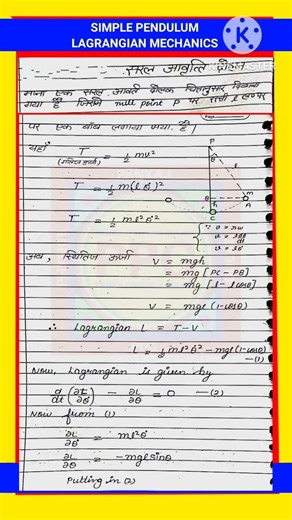 SIMPLE PENDULUM
LAGRANGIAN MECHANICS
K
सरल आवृत्ति दोलन
माना एक सरल आवर्त दोलक चित्रानुसार दिखाया
गया है जिसमें null point P पर रस्सी l
पर एक बॉब लगाया गया है।
यहाँ T = 1/2 mv²
(गतिज ऊर्जा)
T = 1/2 m(lθ̇)²
T = 1/2 ml²θ̇²
P
θ
l
m
B
A
h
C
∵ v = rω
v = l dθ/dt
v = lθ̇
अब, स्थितिज ऊर्जा V = mgh
= mg [PC - PB]
= mg [l - lcosθ]
V = mgl (1-cosθ)
∴ Lagrangian L = T-V
L = 1/2 ml²θ̇² - mgl (1-cosθ)
—(1)
Now, Lagrangian is given by
d/dt (∂L/∂θ̇) - ∂L/∂θ = 0 —(2)
Now from (1)
∂L/∂θ̇ = ml²θ̇
∂L/∂θ = -mglsinθ
Putting in (2)